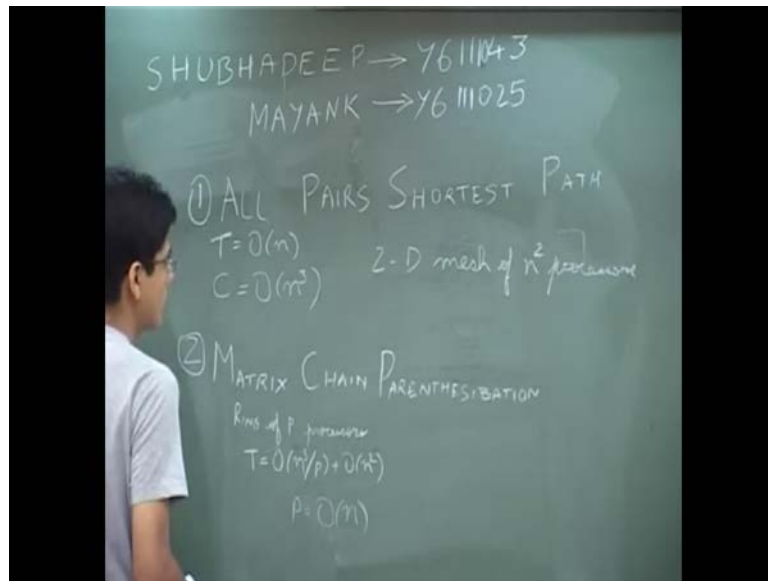 SHUBHADEEP → Y6111043
MAYANK → Y6111025
① ALL PAIRS SHORTEST PATH
T = O(n)
C = O(n³)
2-D mesh of n² processors
② MATRIX CHAIN PARENTHESIBATION
Ring of P processors
T = O(n³/p) + O(n²)
P = O(n)